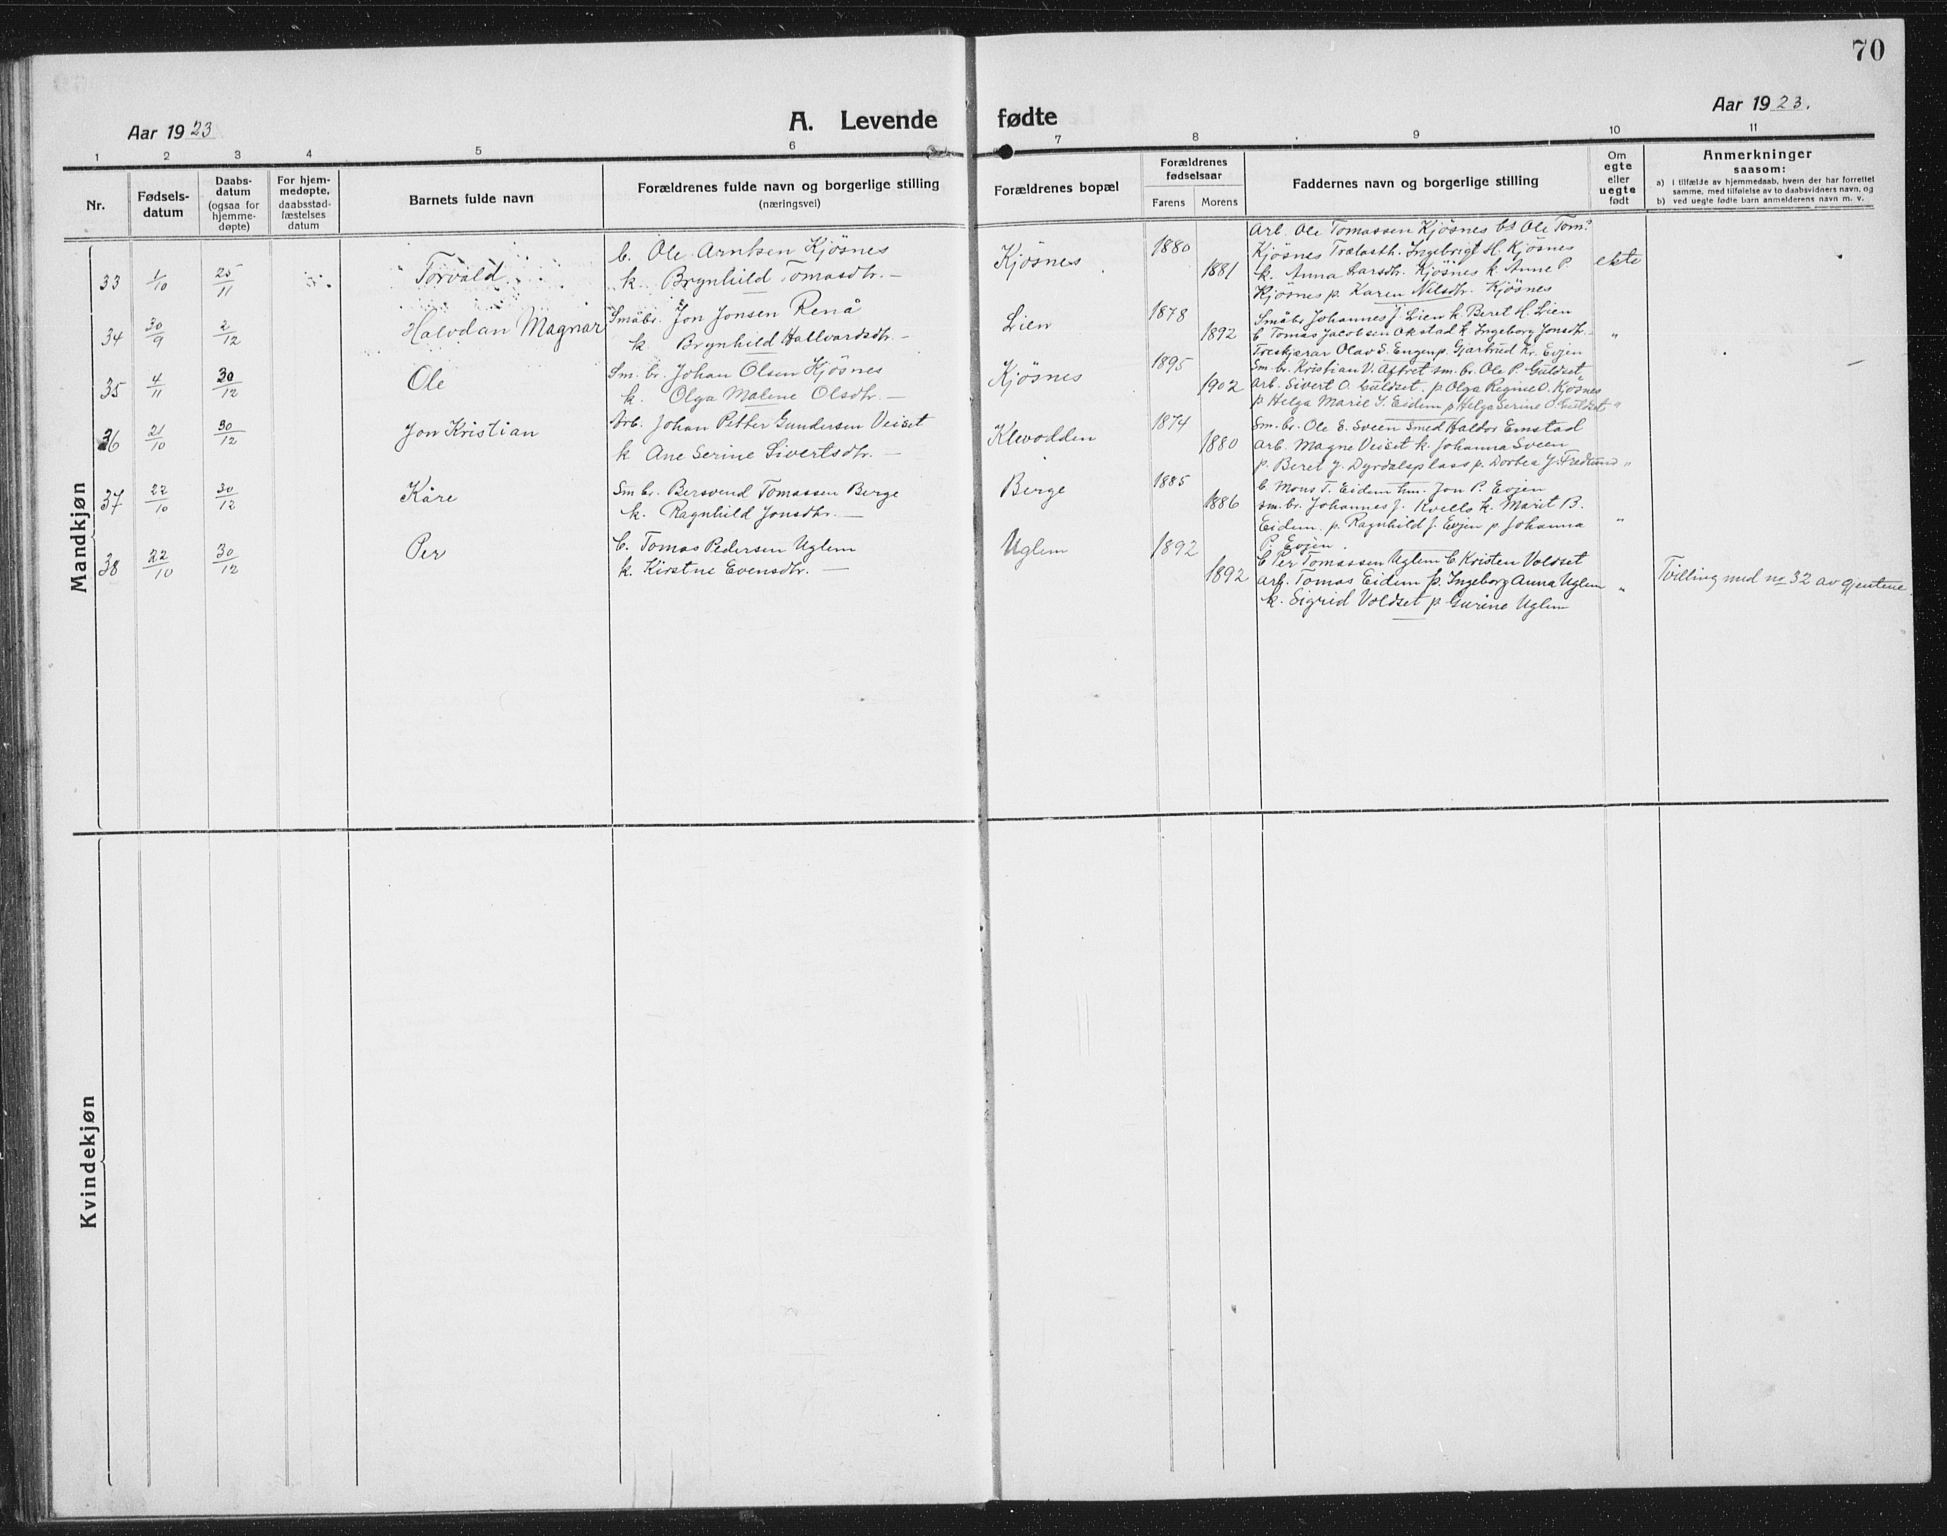 70
Aar 1923
A. Levende fødte
Aar 1923.
1 2 3 4 5 6 7 8 9 10 11
Nr.
Fødsels-
datum
Daabs-
datum
(ogsaa for
hjemme-
døpte)
For hjem-
medøpte,
daabsstad-
fæstelses
datum
Barnets fulde navn
Forældrenes fulde navn og borgerlige stilling
(næringsvei)
Forældrenes bopæl
Forældrenes
fødselsaar
Farens Morens
Faddernes navn og borgerlige stilling
Om
egte
eller
uegte
født
Anmerkninger
saasom:
a) I tilfælde av hjemmedaab, hvem der har forrettet
samme, med tilføielse av to daabsvidners navn, og
b) ved uegte fødte barn anmelderens navn m. v.
Mandkjøn
33 1/10 25/11 Torvald
b. Ole Arntsen Kjøsnes
k. Brynhild Tomasdtr. —
Kjøsnes 1880 1881
Arb. Ole Tomassen Kjøsnes bs Ole Tom?
Kjøsnes Trælasth. Ingebrigt H. Kjøsnes
k. Anna Larsdtr. Kjøsnes k. Anne P.
Kjøsnes p. Karen Nilsdtr. Kjøsnes
ekte
34 30/9 2/12 Halvdan Magnar
Småbr. Jon Jonsen Renå
k. Brynhild Hallvardsdtr. —
Lien 1878 1892
Småbr Johannes J. Lien k. Beret H. Lien
b Tomas Jacobsen Okstad k. Ingeborg Jonsdtr.
Treskjærar Olav S. Engen p. Gjartrud Kr. Evjen
"
35 4/11 30/12 Ole
Sm. br. Johan Olsen Kjøsnes
k. Olga Malene Olsdtr. —
Kjøsnes 1895 1902
Sm. br. Kristian V. Aftret sm. br. Ole P. Guldset
Arb. Sivert O. Guldset. p Olga Regine O. Kjøsnes
p Helga Marie S. Eidem p Helga Serine O. Guldset
"
36 21/10 30/12 Jon Kristian
Arb. Johan Petter Gundersen Veiset
k Ane Serine Sivertsdtr. —
Klevodden 1874 1880
Sm. br. Ole E. Sveen Smed Haldor Emstad
Arb. Magne Veiset k. Johanna Sveen
p. Beret J. Dyrdalsplass p. Dorbea J. Fredlund
"
37 22/10 30/12 Kåre
Sm br. Bersvend Tomassen Berge
k. Ragnhild Jonsdtr. —
Berge 1885 1886
b Mons T. Eidem tm. Jon P. Evjen
sm. br. Johannes J. Kvello k. Marit B.
Eidem. p. Ragnhild J. Evjen p Johanna
P. Evjen.
"
38 22/10 30/12 Per
b. Tomas Pedersen Uglem
k. Kirstne Evensdtr. —
Uglem 1892 1892
b Per Tomassen Uglem b Kristen Voldset
Arb. Tomas Eidem p. Ingeborg Anna Uglem
k. Sigrid Voldset p Gurine Uglem
"
Tvilling med no 32 av gjentene
Kvindekjøn